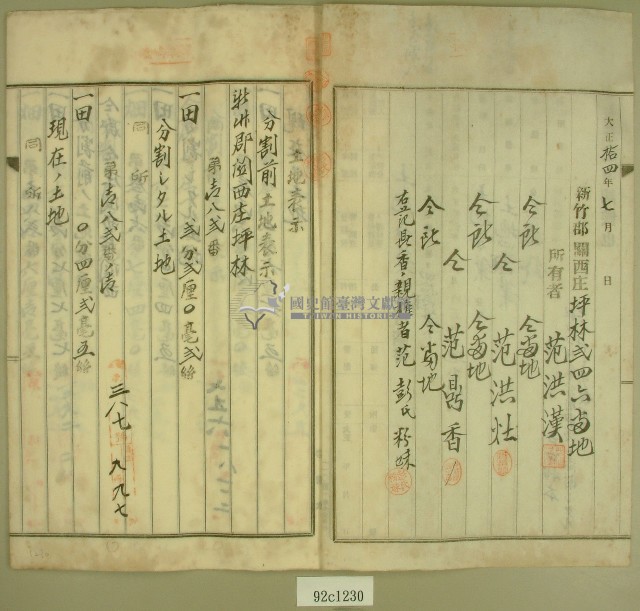 大正拾四年七月 日
新竹郡關西庄坪林弍四六番地
所有者 范洪漢
仝所 仝番地
仝 范洪灶
仝所 仝番地
仝 范鼎香
仝所 仝番地
右范鼎香親權者范彭氏粉妹
分割前土地表示
新竹郡關西庄坪林
第壱八弍番
一田 弍分弍厘〇毫弍絲
分割シタル土地
同所
第壱八弍番ノ壱
一田 〇分四厘弍毫五絲
三八七 九九七
現在ノ土地
同所
國史館臺灣文獻館
TAIWAN HISTORICA
92c1230